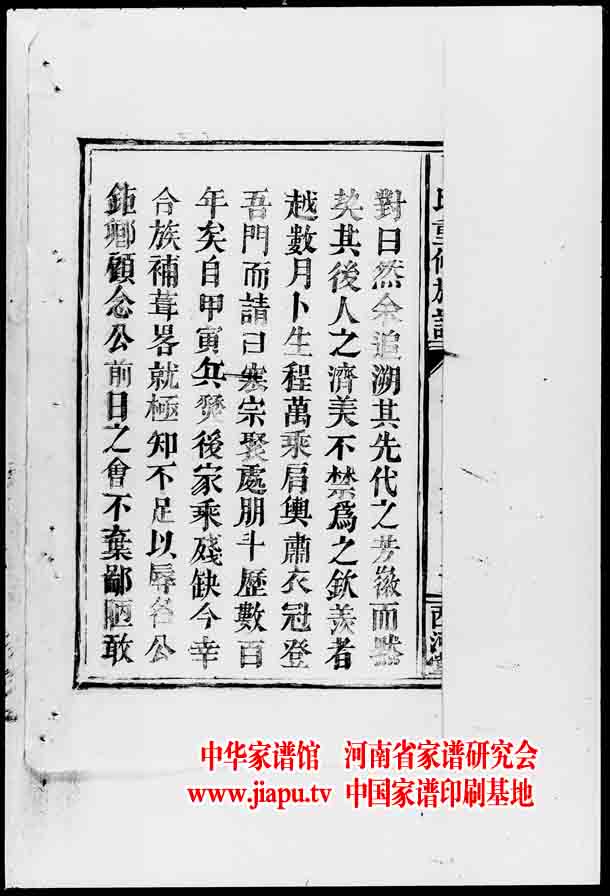 氏重修族譜
西河堂
對曰然余追溯其先代之芳徽而艷
羙其後人之濟美不禁爲之欽羨者
越數月卜生程萬乘肩輿肅衣冠登
吾門而請曰寒宗聚處朋斗歷數百
年矣自甲寅兵燹後家乘殘缺今幸
合族補葺畧就極知不足以辱各公
鉅卿顧念公前日之會不棄鄙陋敢
中华家谱馆 河南省家谱研究会
www.jiapu.tv 中国家谱印刷基地